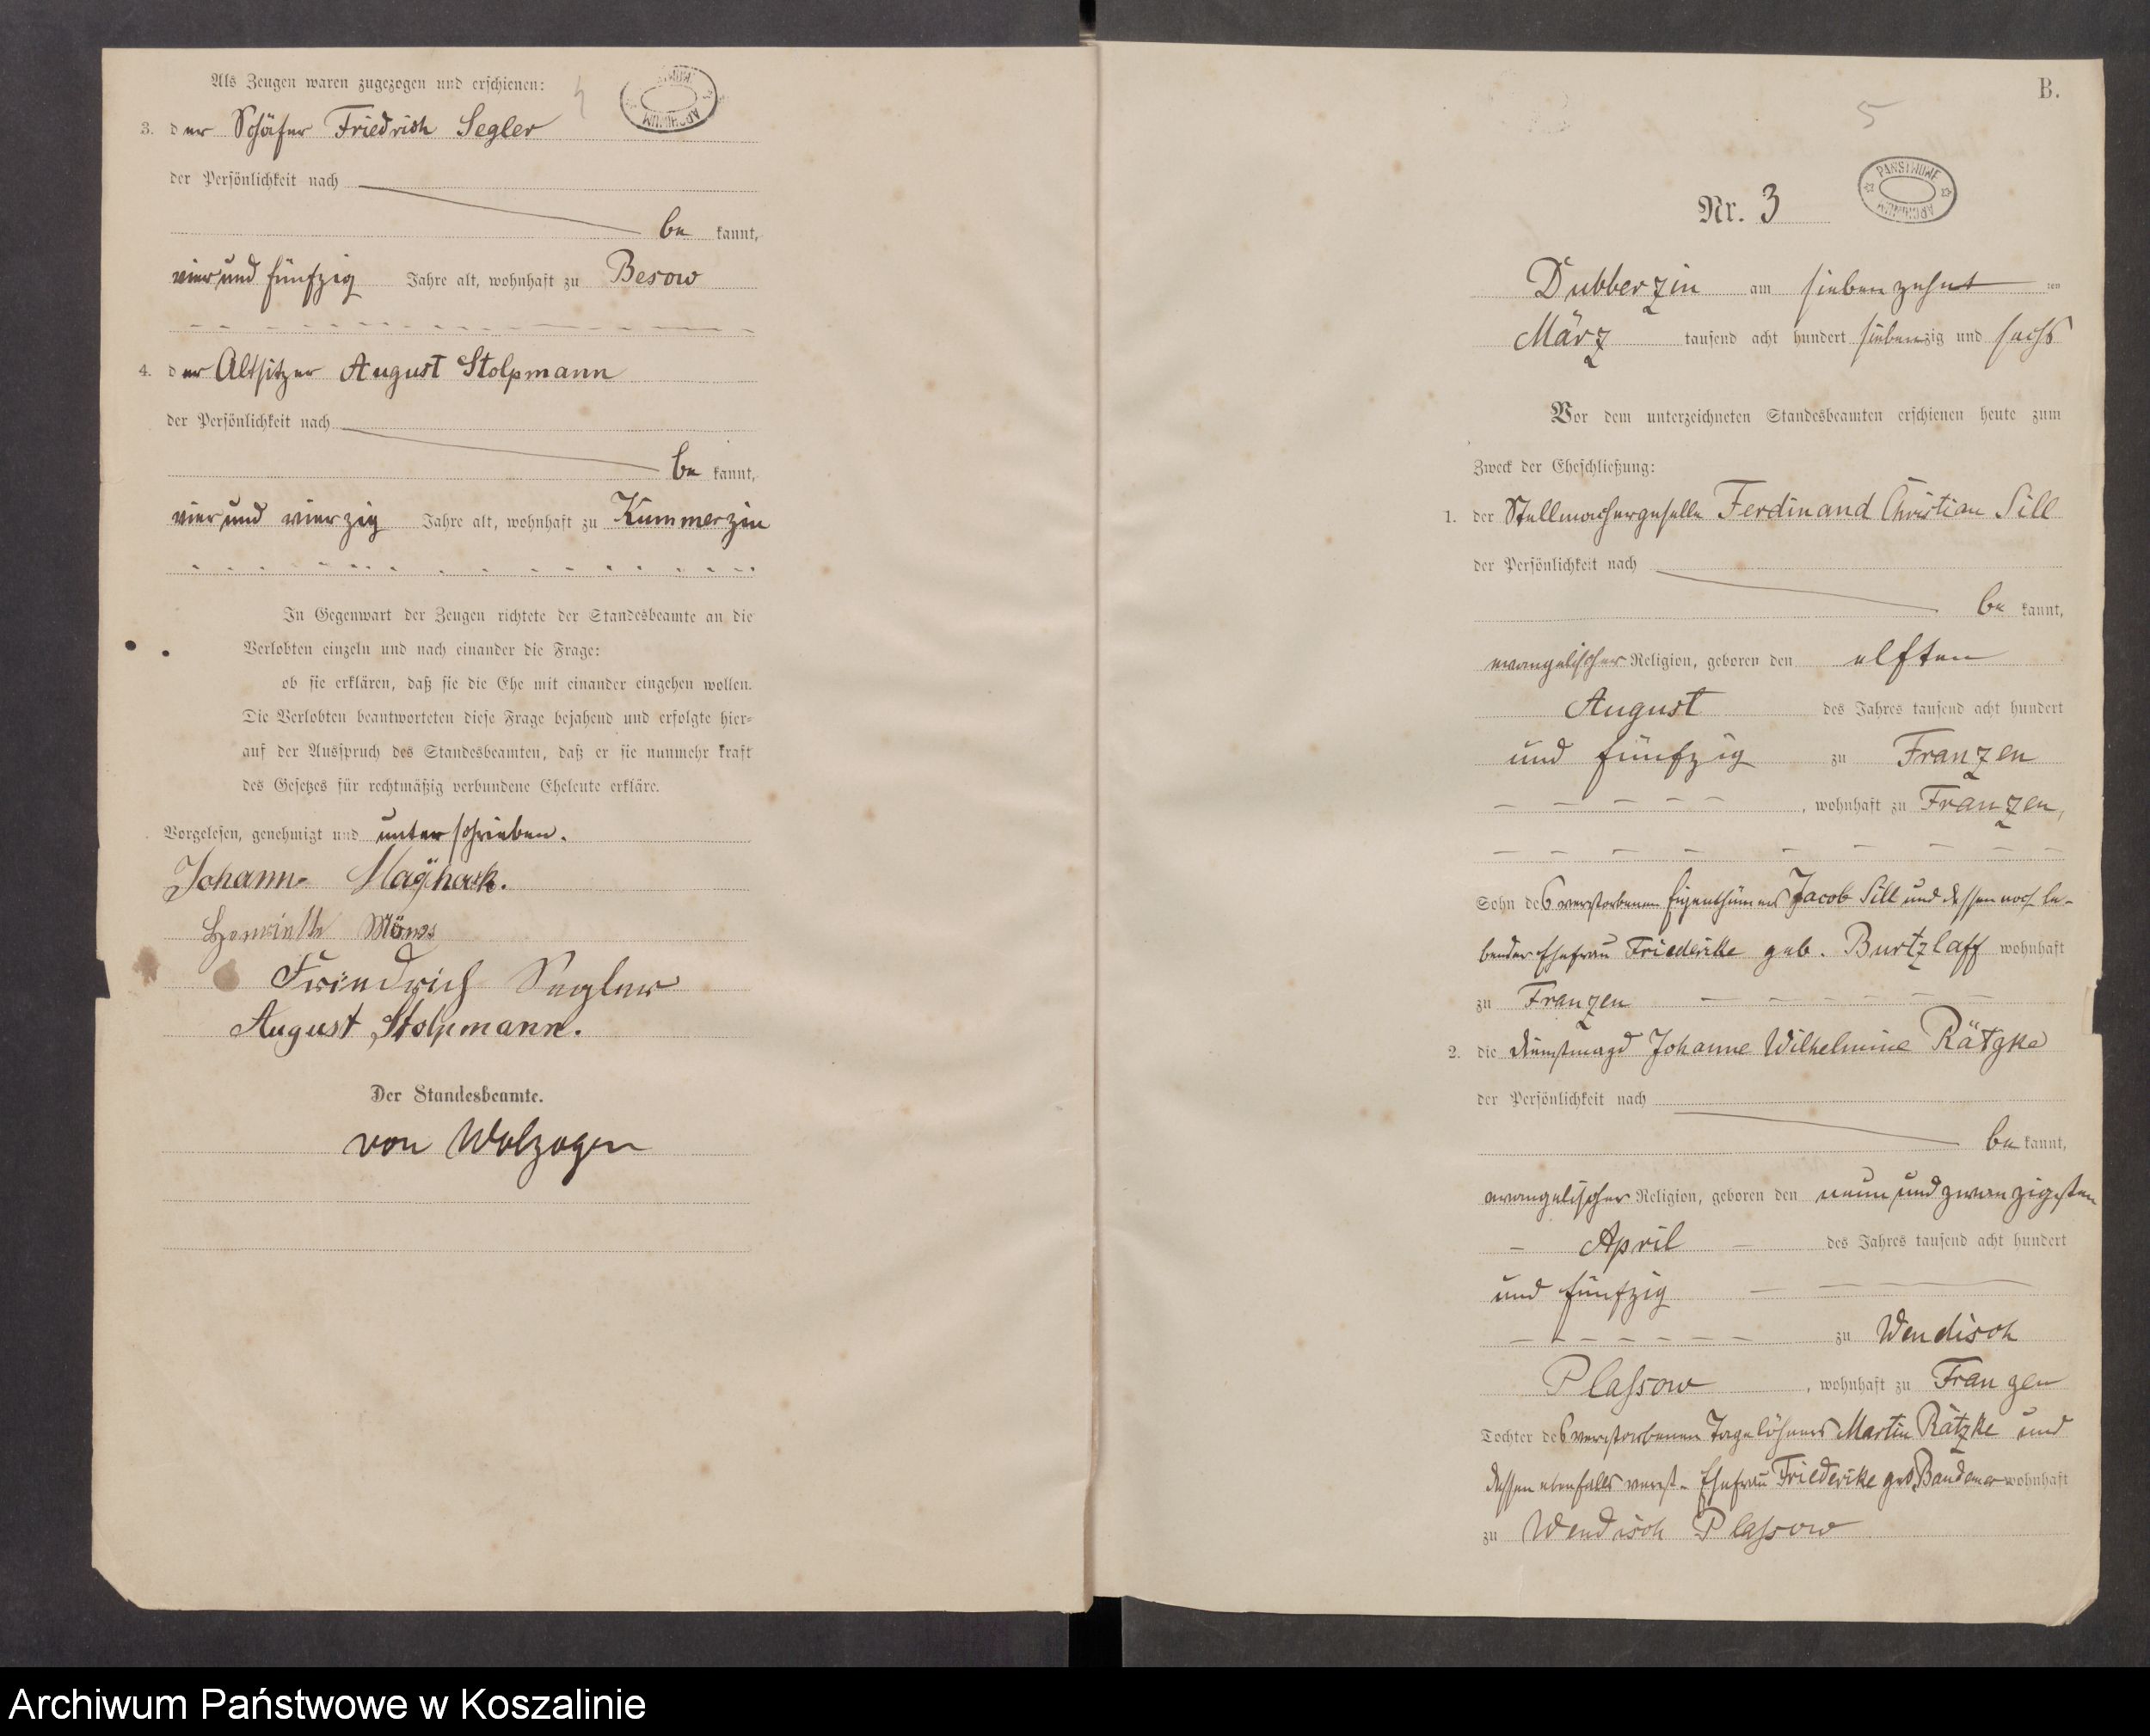 Als Zeugen waren zugezogen und erschienen:
3. der Schäfer Friedrich Segler
der Persönlichkeit nach
be kannt,
vier und fünfzig Jahre alt, wohnhaft zu Besow
4. der Altsitzer August Stolpmann
der Persönlichkeit nach
be kannt,
vier und vierzig Jahre alt, wohnhaft zu Kummerzin
In Gegenwart der Zeugen richtete der Standesbeamte an die
Verlobten einzeln und nach einander die Frage:
ob sie erklären, daß sie die Ehe mit einander eingehen wollen.
Die Verlobten beantworteten diese Frage bejahend und erfolgte hier=
auf der Ausspruch des Standesbeamten, daß er sie nunmehr kraft
des Gesetzes für rechtmäßig verbundene Eheleute erkläre.
Vorgelesen, genehmigt und unterschrieben.
Johann
Henriette
Friedrich Segler
August Stolpmann.
Der Standesbeamte.
von Wolzogen
B.
5
PAŃSTWOWE ARCHIWUM
Nr. 3
Dubberzin am siebenzehnt ten
März tausend acht hundert siebenzig und sechs
Vor dem unterzeichneten Standesbeamten erschienen heute zum
Zweck der Eheschließung:
1. der Stellmachergeselle Ferdinand Christian Sill
der Persönlichkeit nach
be kannt,
evangelischer Religion, geboren den elften
August des Jahres tausend acht hundert
und fünfzig zu Franzen
, wohnhaft zu Franzen,
Sohn des verstorbenen Eigenthümers Jacob Sill und dessen noch le-
bender Ehefrau Friederike geb. Burtzlaff wohnhaft
zu Franzen
2. die Dienstmagd Johanne Wilhelmine Rätzke
der Persönlichkeit nach
be kannt,
evangelischer Religion, geboren den neun und zwanzigsten
April des Jahres tausend acht hundert
und fünfzig
zu Wendisch
Plassow, wohnhaft zu Franzen
Tochter des verstorbenen Tagelöhners Martin Rätzke und
dessen ebenfalls verst. Ehefrau Friederike geb. wohnhaft
zu Wendisch Plassow
Archiwum Państwowe w Koszalinie